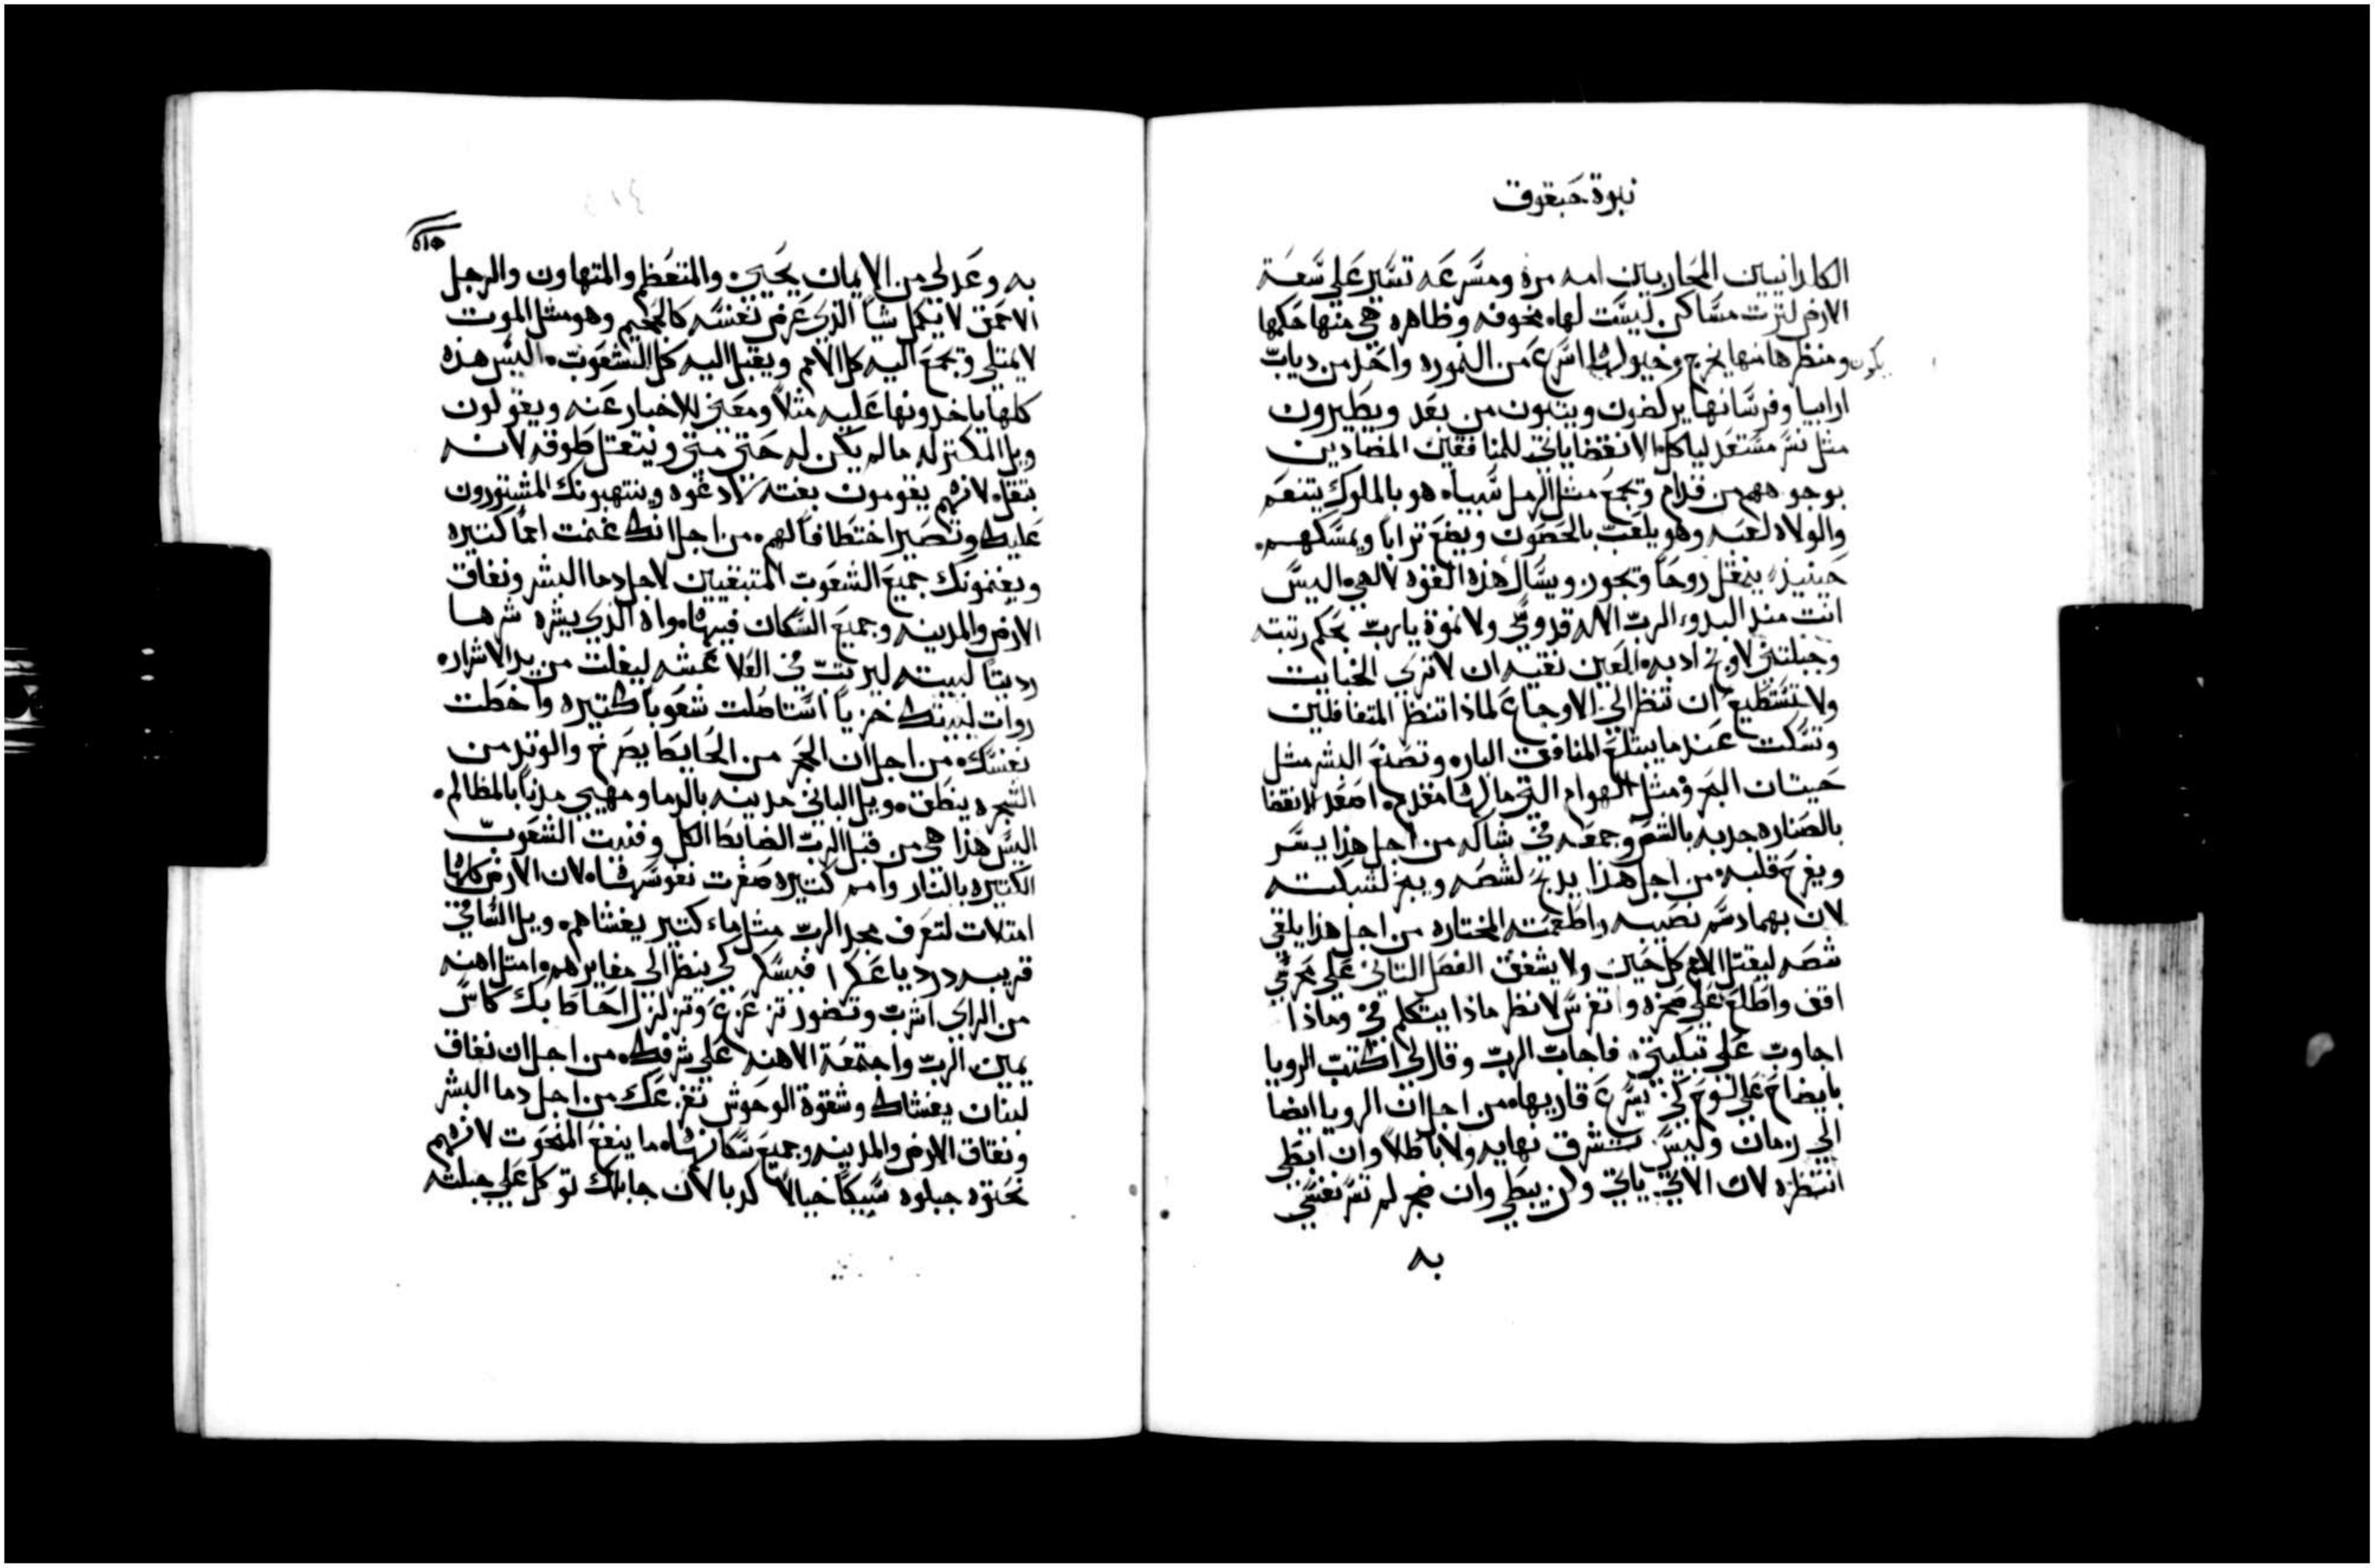 نبوة حبقوق
الكلدانيين المحاربين امه مره ومسرعه تسير على سعة
الارض لترث مساكن ليست لها. مخوفه وظاهره هي منها حكمها
يكون ومنظرها منها يخرج وخيولها اسرع من النموره واحد من دياب
ارابيا وفرسانها يركضون ويتبون من بعد ويطيرون
مثل نسر مستعد لياكل. الانقضا ياتي للمنافقين المضادين
بوجوههم من قدام وتجمع مثل الرمل سبيا. هو بالملوك يتنعم
والولاه لعبه وهو يلعب بالحصون ويضع ترابا ويمسكهم.
حينيذ ينتقل روحا وتجوز ويسال هذه القوه لالهي. اليس
انت منذ البدو الرب الاله قدوسي ولا نموة يارب بحكم رتبته
وجبلتني لاوبخ ادبه. العين نقيه ان لا تري الخبايت
ولا تستطيع ان تنظر الى الاوجاع لماذا تنظر المتغافلين
وتسكت عندما يبتلع المنافق الباره وتصنع البشر مثل
حيتان البحر ومثل الهوام التي ما لها مقدم. اصعد الانقضا
بالصناره جذبه بالشص وجمعه في شباكه من اجل هذا يسر
ويفرح قلبه. من اجل هذا يدبح لشصه ويبخر لشبكته
لان بهما دسم نصيبه واطعمته المختاره من اجل هذا يلقي
شصه ليقتل الامم كل حين ولا يشفق الفصل التاني على محرسي
اقف واطلع على صخره واتفرس لانظر ماذا يتكلم في وماذا
اجاوب على تبكيتي. فاجاب الرب وقال لي اكتب الرويا
بايضاح على لوح لكي يسرع قاريها. من اجل ان الرويا ايضا
الى زمان وليس ستشرق نهايه ولا باطلا وان ابطي
انتظره لان الاتي ياتي ولن يبطي وان ضجر لم تسر نفسي
به
به وعدلي من الايمان يحيي. والمتعظم والمتهاون والرجل
الاحمق لا يكمل شيا الذي عرض نفسه كالجحيم وهو مثل الموت
لا يمتلي وتجمع اليه كل الامم ويقبل اليه كل الشعوب. اليس هذه
كلها ياخدونها عليه مثلا ومعنى للاخبار عنه ويقولون
ويل المكتر له ما لم يكن له حتى متي ويتقل طوقه لانه
بتقل. لانهم يقومون بغته لادغوه وينتهبونك المشورون
عليك وتصير اختطافا لهم. من اجل انك غنمت امما كتيره
ويغنمونك جميع الشعوب المتبقيين لاجل دما البشر ونفاق
الارض والمدينه وجميع السكان فيها. واه الذي يشره شرها
رديا لبيته ليرتب في العلا عشه ليفلت من يد الاشرار.
روات لبيتك خزيا استاصلت شعوبا كتيره واخطت
نفسك. من اجل ان الحجر من الحايط يصرخ والوتد من
الشجره ينطق. ويل الباني مدينه بالدما ومهيي مدنا بالمظالم.
اليس هذا هي من قبل الرب الضابط الكل وفنيت الشعوب
الكتيره بالنار وامم كتيره صغرت نفوسها. لان الارض كلها
امتلات لتعرف مجد الرب مثل ماء كتير يغشاهم. ويل الساقي
قريبه درديا عكرا فيسكر لكي ينظر الى مغايرهم. وامتل اهنه
من الراي اشرب وتضور تزعزع وتزلزل احاط بك كاس
يمين الرب واجتمعة الاهنه على شرفك. من اجل ان نفاق
لبنان يغشاك وشقوة الوحوش تفزعك من اجل دما البشر
ونفاق الارض والمدينه وجميع سكانها. ما ينفع المنحوت لانهم
نحتوه جبلوه سبيكا خيالا كدبا لان جابلك توكل على جبلته